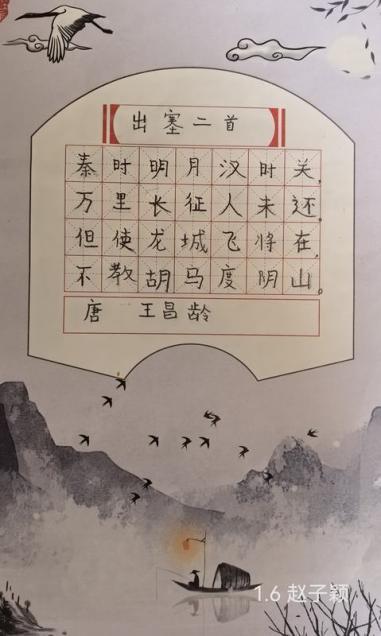 出塞二首
秦时明月汉时关,
万里长征人未还。
但使龙城飞将在,
不教胡马度阴山。
唐 王昌龄
1.6 赵子颖